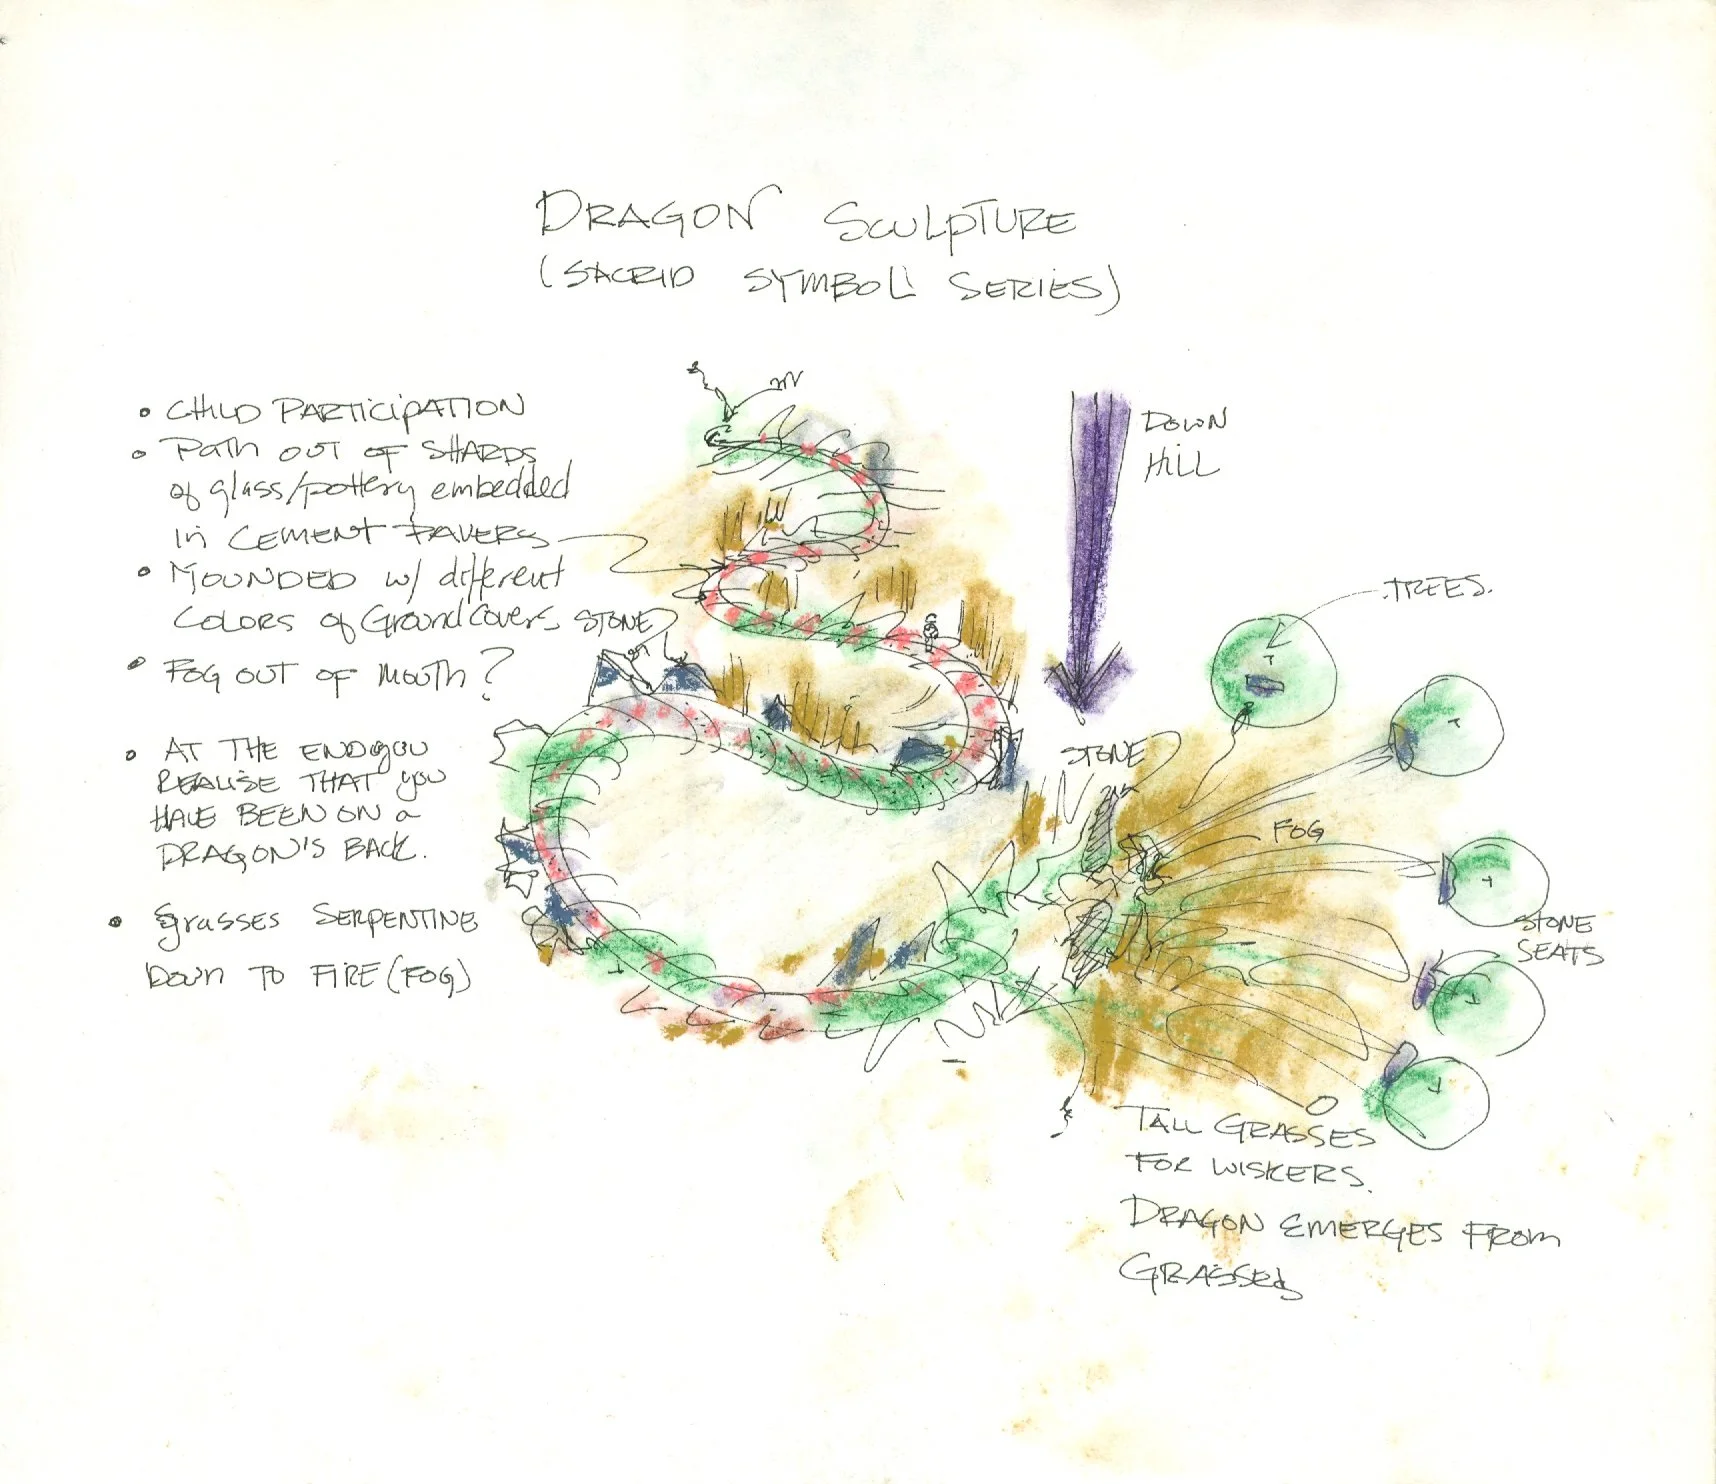 DRAGON SCULPTURE
(SACRID SYMBOL SERIES)
• CHILD PARTICIPATION
• Path out of SHARDS
of glass/pottery embedded
in CEMENT PAVERS
• MOUNDED w/ different
COLORS of Groundcovers
STONE
• FOG OUT OF MOUTH?
• AT THE END you
REALISE THAT you
HAVE BEEN ON a
DRAGON'S BACK.
• grasses SERPENTINE
Down TO FIRE (FOG)
DOWN
HILL
TREES.
STONE
FOG
STONE
SEATS
TALL GRASSES
FOR WISKERS.
DRAGON EMERGES FROM
GRASSES